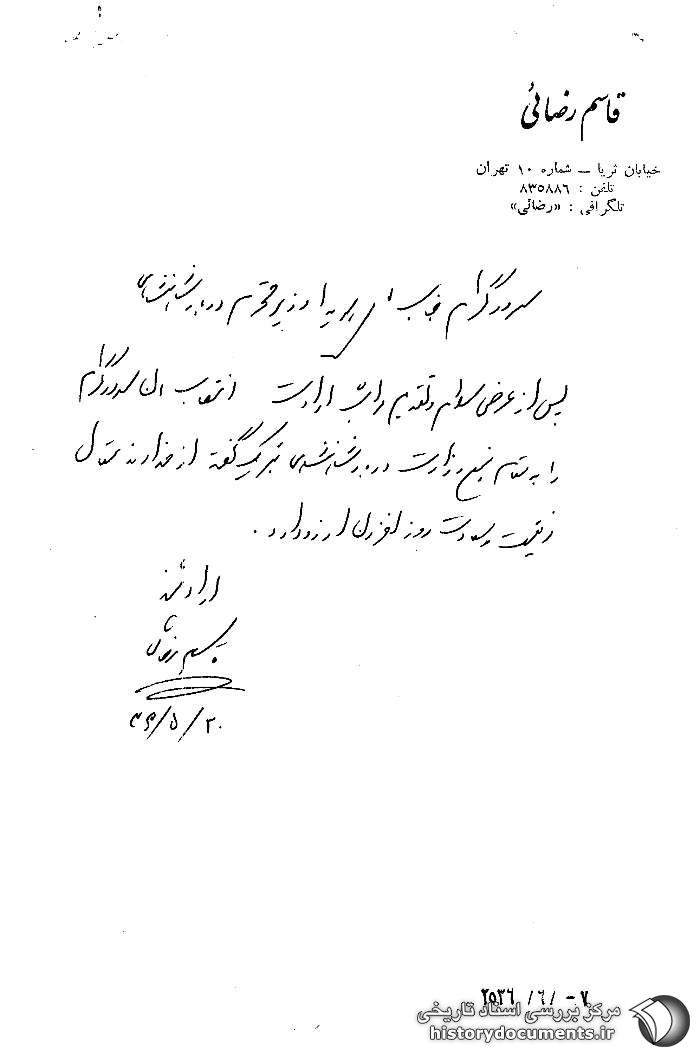 قاسم رضائی
خیابان ثریا — شماره ۱۰ تهران
تلفن : ۸۳۵۸۸۶
تلگرافی : «رضائی»
سرور گرام جناب وزیر محترم دربار شاهنشاهی
پس از عرض سلام و تقدیم مراتب ارادت انتصاب آن سرور گرام
را به مقام منیع وزارت دربار شاهنشاهی تبریک گفته از خداوند متعال
موفقیت و سعادت روز افزون آرزو دارد.
ارادتمند
قاسم رضائی
۳۶/۵/۲۰
۲۵۳۶ /۶/ -۷
مرکز بررسی اسناد تاریخی
historydocuments.ir